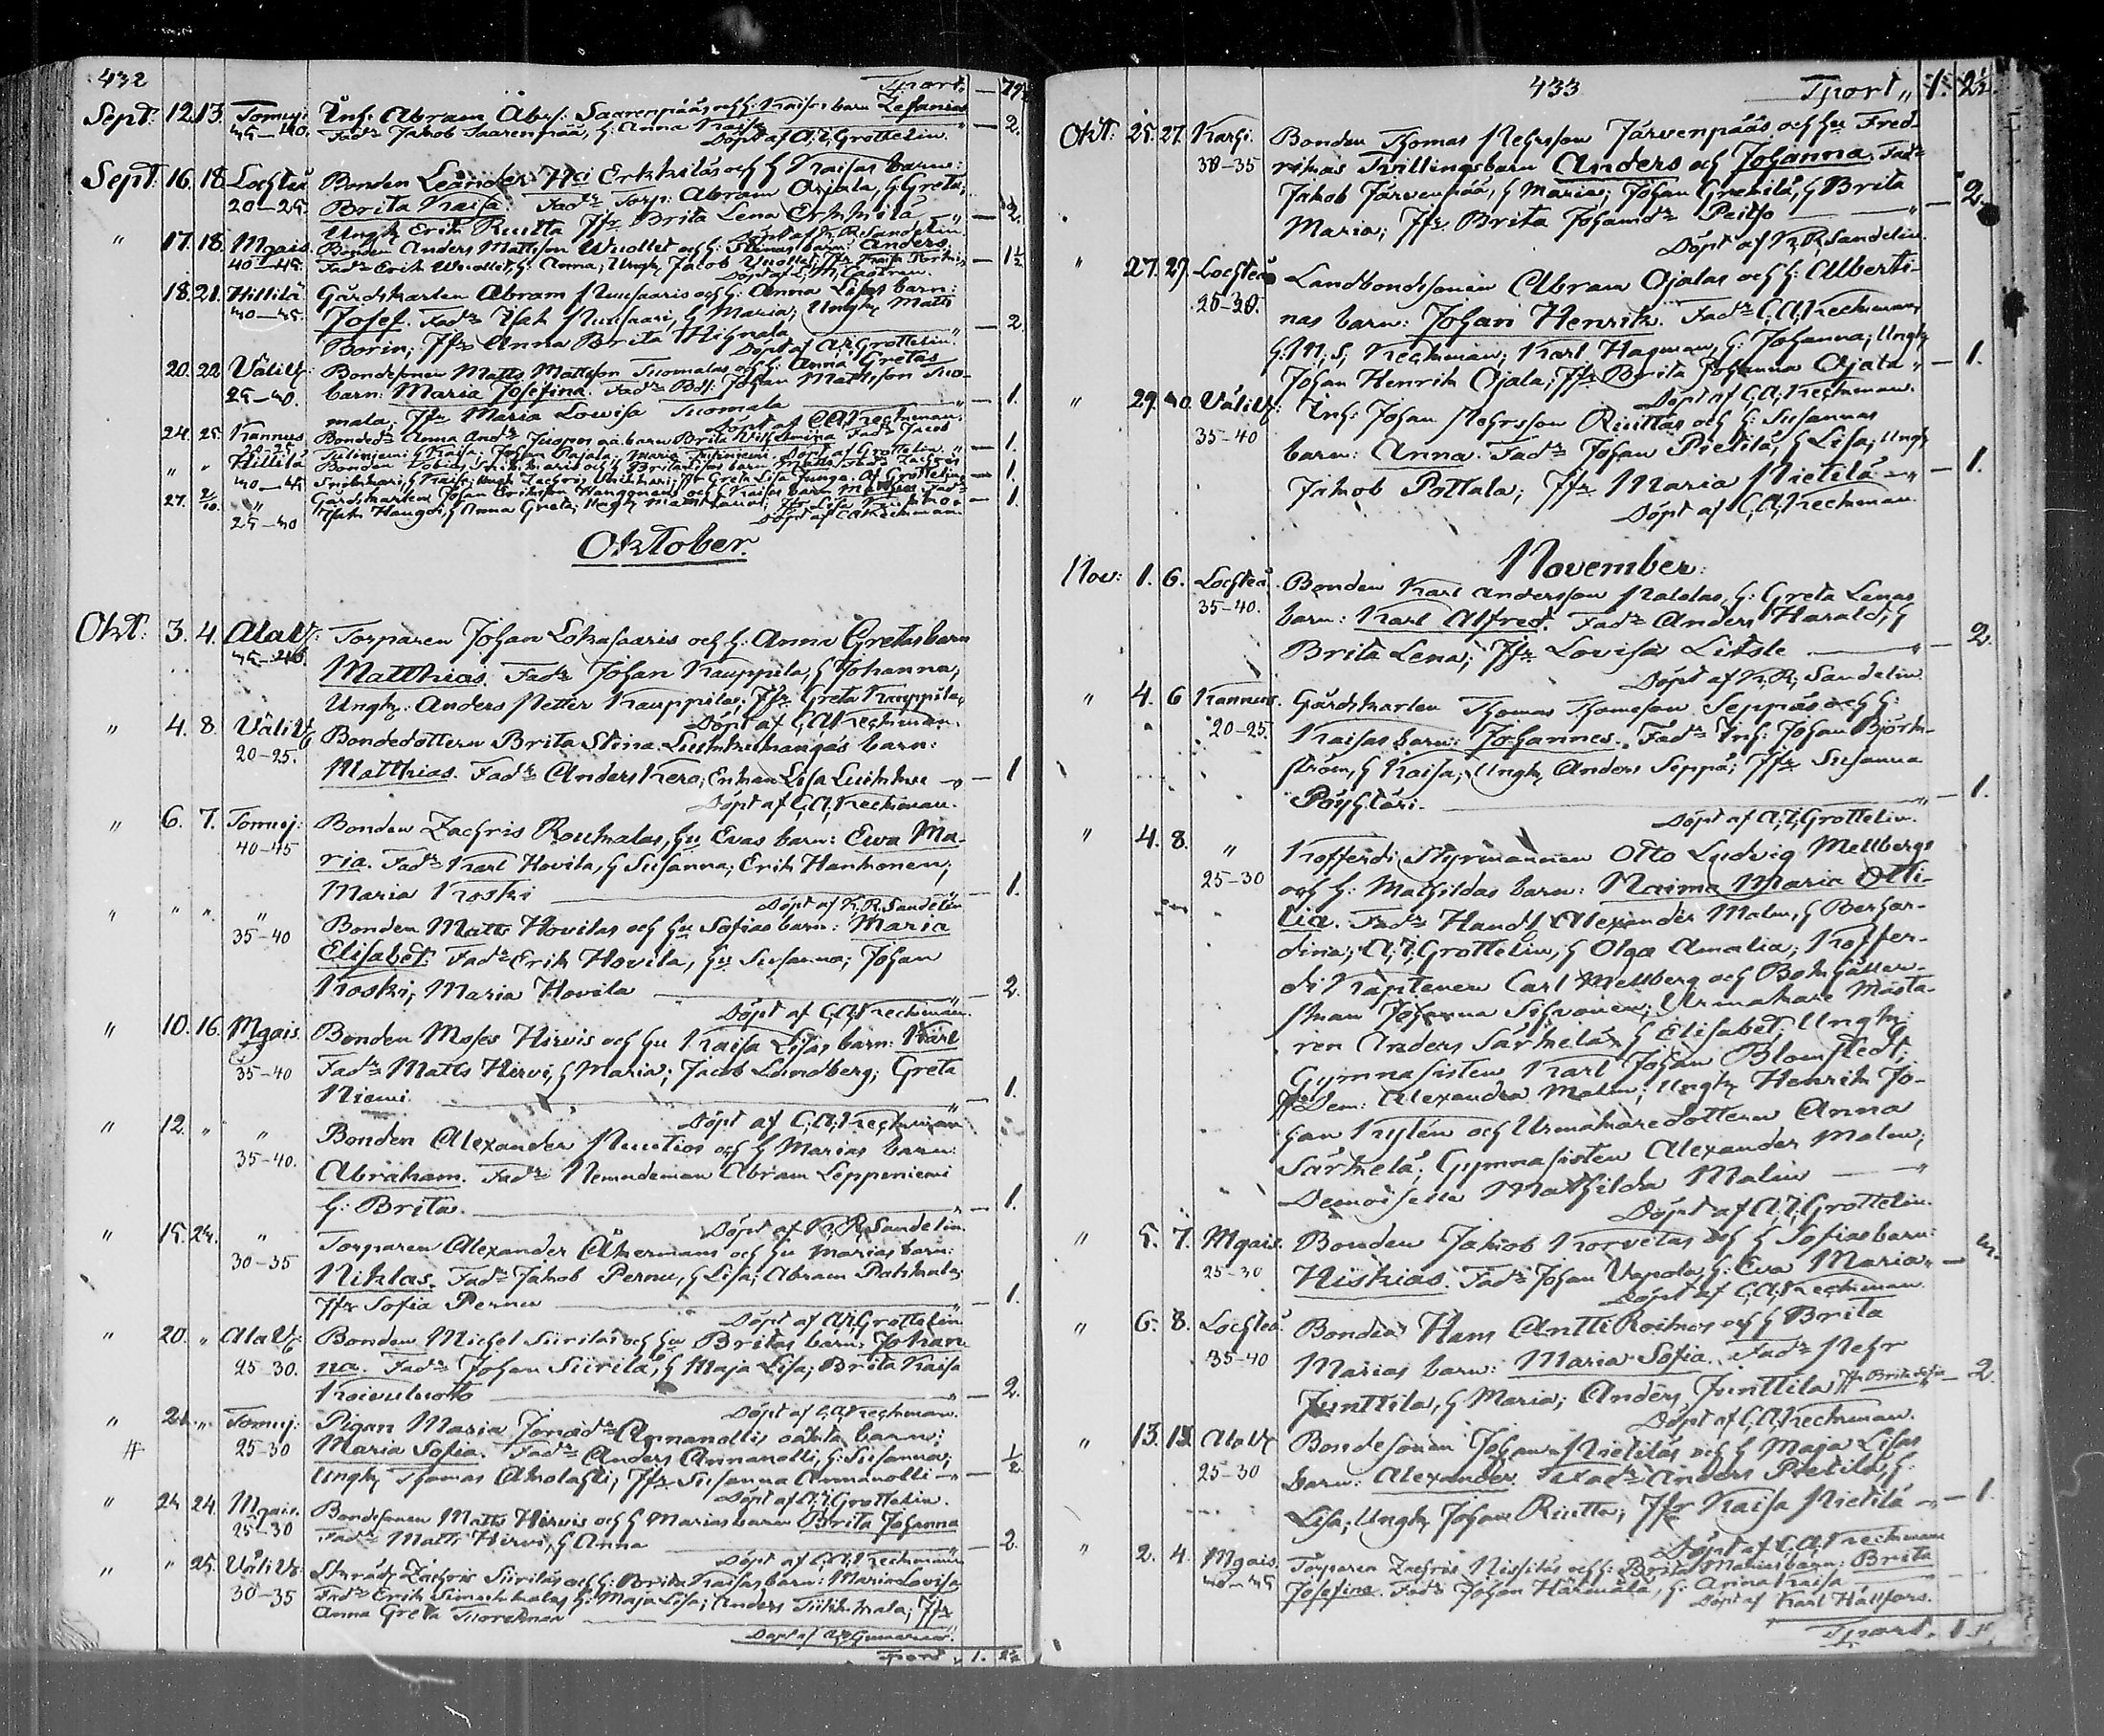 432
Tport. — 79
Sept. 12. 13. Tomuj: Inh: Abram Abrs: Saarenpääs och h: Kaisas barn Zefanias
45–40. Fadr Jakob Saarenpää, h: Anna Kaisa " — 2.
Döpt af A. I. Grottelin.
Sept. 16. 18. Lochteå Bonden Leander Erkkiläs och h Kaisas barn:
20–25. Brita Kaisa. Fadr Torp: Abram Ojala, h Greta,
Ungk Erik Ruutta Jfr Brita Lena Erkkilä " — 2.
Döpt af K. R. Sandelin.
" 17. 18. Mgais. Bonden Anders Mattsson Wuollet och h: Stinas barn: Anders.
40–45. Fadr Erik Wuollet, h: Anna; Ungk Jacob Wuollet; Jfr Kaisa — 1½
Döpt af Castren.
18. 21. Hillilä Gårdskarlen Abram Nuusaaris och h: Anna Lisas barn:
40–45. Josef. Fadr Isak Nuusaari, h Maria; Ungk Matts
Borin; Jfr Anna Brita Hihnala " — 2.
Döpt af A. I. Grottelin.
20. 22 Välivh: Bondesonen Matts Mattsson Tuomalas och h: Anna Gretas
25–30. barn: Maria Josefina. Fadr Bds: Johan Mattsson Tuo-
mala, Jfr Maria Lovisa Tuomala " — 1.
Döpt af C. A. Keckman.
24. 25. Kannus Bonded: Anna Andr oä. barn Brita Wilhelmina Fadr Jacob
h Kaisa; Johan Rajala; Maria Döpt af Grottelin " — 1.
" " Hillilä Bonden Tobias och h Brita Lisas barn Matts Fadr Zachris
40–45 h Kaisa; Ungk Zachris Jfr Greta Lisa Junga. Af Grottelin — 1.
27. 2/10. " Gårdskarlen Johan Eriksson och h Kaisas barn Fadr
25–30 Isak h Anna Greta; Ungk Matts Jfr Lisa " — 1.
Döpt af C. A. Keckman
Oktober.
Okt: 3. 4. Alavh: Torparen Johan Lokasaaris och h: Anna Gretas barn
Matthias. Fadr Johan Kauppila, h Johanna;
Ungk: Anders Petter Kauppila; Jfr Greta Kauppila,
Döpt af C. A. Keckman.
" 4. 8. Välivh Bondedottern Brita Stina Luikkukangas barn:
20–25. Matthias. Fadr Anders Kero; Enkan Lisa Luikku " — 1
Döpt af C. A. Keckman.
" 6. 7. Tomuj: Bonden Zachris Roukalas, hu Evas barn: Ewa Ma-
40–45 ria. Fadr Karl Hovila, h Susanna; Erik Hankonen;
Maria Koski " — 1.
Döpt af K. R. Sandelin
" " " " Bonden Matts Hovilas och hu Sofias barn: Maria
35–40 Elisabet. Fadr Erik Hovila, hu Susanna; Johan
Koski; Maria Hovila " — 2.
Döpt af C. A. Keckman.
" 10. 16. Mgais. Bonden Moses Hirvis och hu Kaisa Lisas barn: Karl
35–40 Fadr Matts Hirvi, h Maria; Jacob Lundberg; Greta
Niemi " — 1.
Döpt af C. A. Keckman
" 12. " " Bonden Alexander Nuutios och h Marias barn:
35–40. Abraham. Fadr Nemndeman Abram Leppeniemi
h: Brita. " — 1.
Döpt af K. R. Sandelin.
" 15. 24. " Torparen Alexander Åkermans och hu Marias barn:
30–35 Niklas. Fadr Jakob Pernu, h Lisa; Abram Pahkala;
Jfr Sofia Pernu " — 1.
Döpt af A. I. Grottelin
" 20. " Alavh Bonden Michel Siiriläs och hu Britas barn: Johan
25–30. na. Fadr Johan Siirilä, h Maja Lisa; Brita Kaisa
Koivuluoto " — 2.
Döpt af C. A. Keckman.
" 21. " Tomuj: Pigan Maria Jonædr Annanollis oäkta barn:
# 25–30 Maria Sofia. Fadr Anders Annanolli, h: Susanna;
Ungk Thomas Aholahti; Jfr Susanna Annanolli " — ½
Döpt af A. I. Grottelin.
" 24 24. Mgais. Bondesonen Matts Hirvis och h Marias barn Brita Johanna
25–30 Fadr Matts Hirvi, h Anna — 2.
Döpt af C. A. Keckman
" " 25. Välivh Skräd: Zachris Siiriläs och h: Brita Kaisas barn: Maria Lovisa
30–35 Fadr Erik h: Maja Lisa; Anders Jfr
Anna Greta
Döpt af
Tport " 1. 2½
433
Tport " 1. 2½.
Okt: 25. 27. Karhi. Bonden Thomas Pehrsson Järvenpääs och hu Fred-
30–35 rikas Tvillingsbarn Anders och Johanna. Fadr
Jakob Järvenpää, h Maria; Johan Grekilä, h Brita
Maria; Jfr Brita Johansdr Peitso " — 2.
Döpt af K. R. Sandelin.
" 27. 29. Lochteå Landbondesonen Abram Ojalas och h: Alberti-
25–30. nas barn: Johan Henrik. Fadr C. A. Keckman,
h: M. S. Keckman; Karl Hagman, h: Johanna; Ungk
Johan Henrik Ojala; Jfr Brita Johanna Ojala " — 1.
Döpt af C. A. Keckman.
" 29. 30. Välivh: Inh: Johan Pehrsson Ruuttas och h: Susannas
35–40 barn: Anna. Fadr Johan Pietilä, h Lisa; Ungk
Jakob Pottala; Jfr Maria Pietilä " — 1.
Döpt af C. A. Keckman
November.
Nov: 1. 6. Lochteå. Bonden Karl Andersson h: Greta Lenas
35–40. barn: Karl Alfred. Fadr Anders Harald, h
Brita Lena; Jfr Lovisa " — 2.
Döpt af K. R. Sandelin
" 4. 6 Kannus. Gårdskarlen Thomas Thomeson Seppäs och h:
20–25. Kaisas barn: Johannes. Fadr Inh: Johan Björk-
ström, h Kaisa; Ungk Anders Seppä; Jfr Susanna
Pöyhtäri. " — 1.
Döpt af A. I. Grottelin.
" 4. 8. " Kofferdi Styrmannen Otto Ludvig Mellbergs
25–30 och h: Mathildas barn: Naima Maria Otti-
lia. Fadr Handl Alexander Malm, h Bernhar-
dina; A. I. Grottelin, h Olga Amalia; Koffer-
di Kaptenen Carl Mellberg och Bokhållers-
fruan Johanna Sihvonen; Urmakare Mästa-
ren Anders Särkelä, h Elisabet; Ungk:
Gymnasisten Karl Johan Blomstedt;
Dem: Alexandra Malm; Ungk Henrik Jo-
han Kylén och Urmakaredottern Anna
Särkelä; Gymnasisten Alexander Malm;
Demoiselle Mathilda Malm — "
Döpt af A. I. Grottelin.
" 5. 7. Mgais. Bonden Jakob Korvelas och h Sofias barn:
25–30 Hiskias. Fadr Johan Vapola, h: Eva Maria " —
Döpt af C. A. Keckman.
" 6. 8. Lochteå. Bonden Hans Antti Roimos och h Brita
35–40 Marias barn: Maria Sofia. Fadr Pehr
Junttila, h Maria; Anders Junttila Jfr Brita Sofia " — 2.
Döpt af C. A. Keckman.
" 13. 15. Alavh Bondesonen Johan Pietiläs och h Maja Lisas
25–30 barn: Alexander. Fadr Anders Pietilä, h:
Lisa; Ungk Johan Ruutta; Jfr Kaisa Pietilä " — 1.
Döpt af C. A. Keckman
" 2. 4. Mgais. Torparen Zachris och h: Brita Marias barn: Brita
40–45 Josefina. Fadr Johan Härmälä, h: Anna Kaisa
Döpt af Karl Hällfors.
Tport.